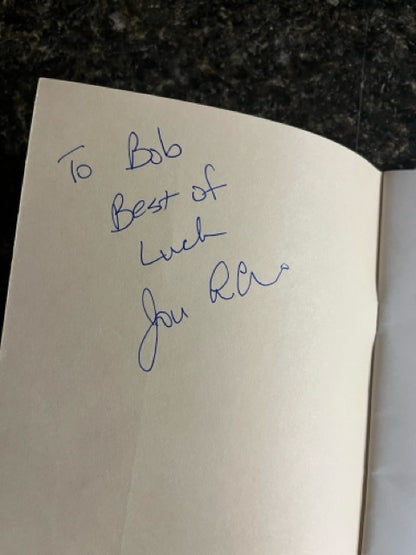 To Bob
Best of
Luck
Jon